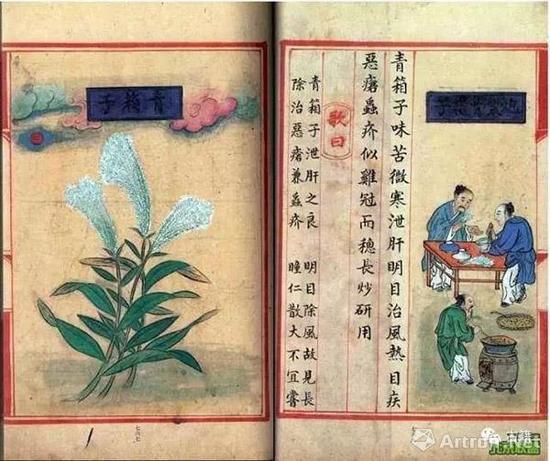 青箱子味苦微寒泄肝明目治風熱目疾
惡瘡蟲疥似雞冠而穗長炒研用
歌曰
青箱子泄肝之良 明目除風故見長
除治惡瘡兼蟲疥 瞳仁散大不宜嘗
青箱子
Artron.Net
古籍